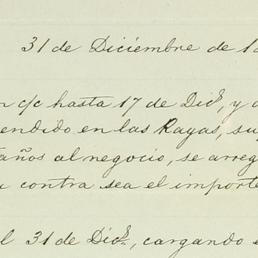 31 de Diciembre de 1
n c/c hasta 17 de Dice, y
endido en las Rayas, su
taños al negocio, se arreg
contra sea el importe
l 31 de Dice, cargando